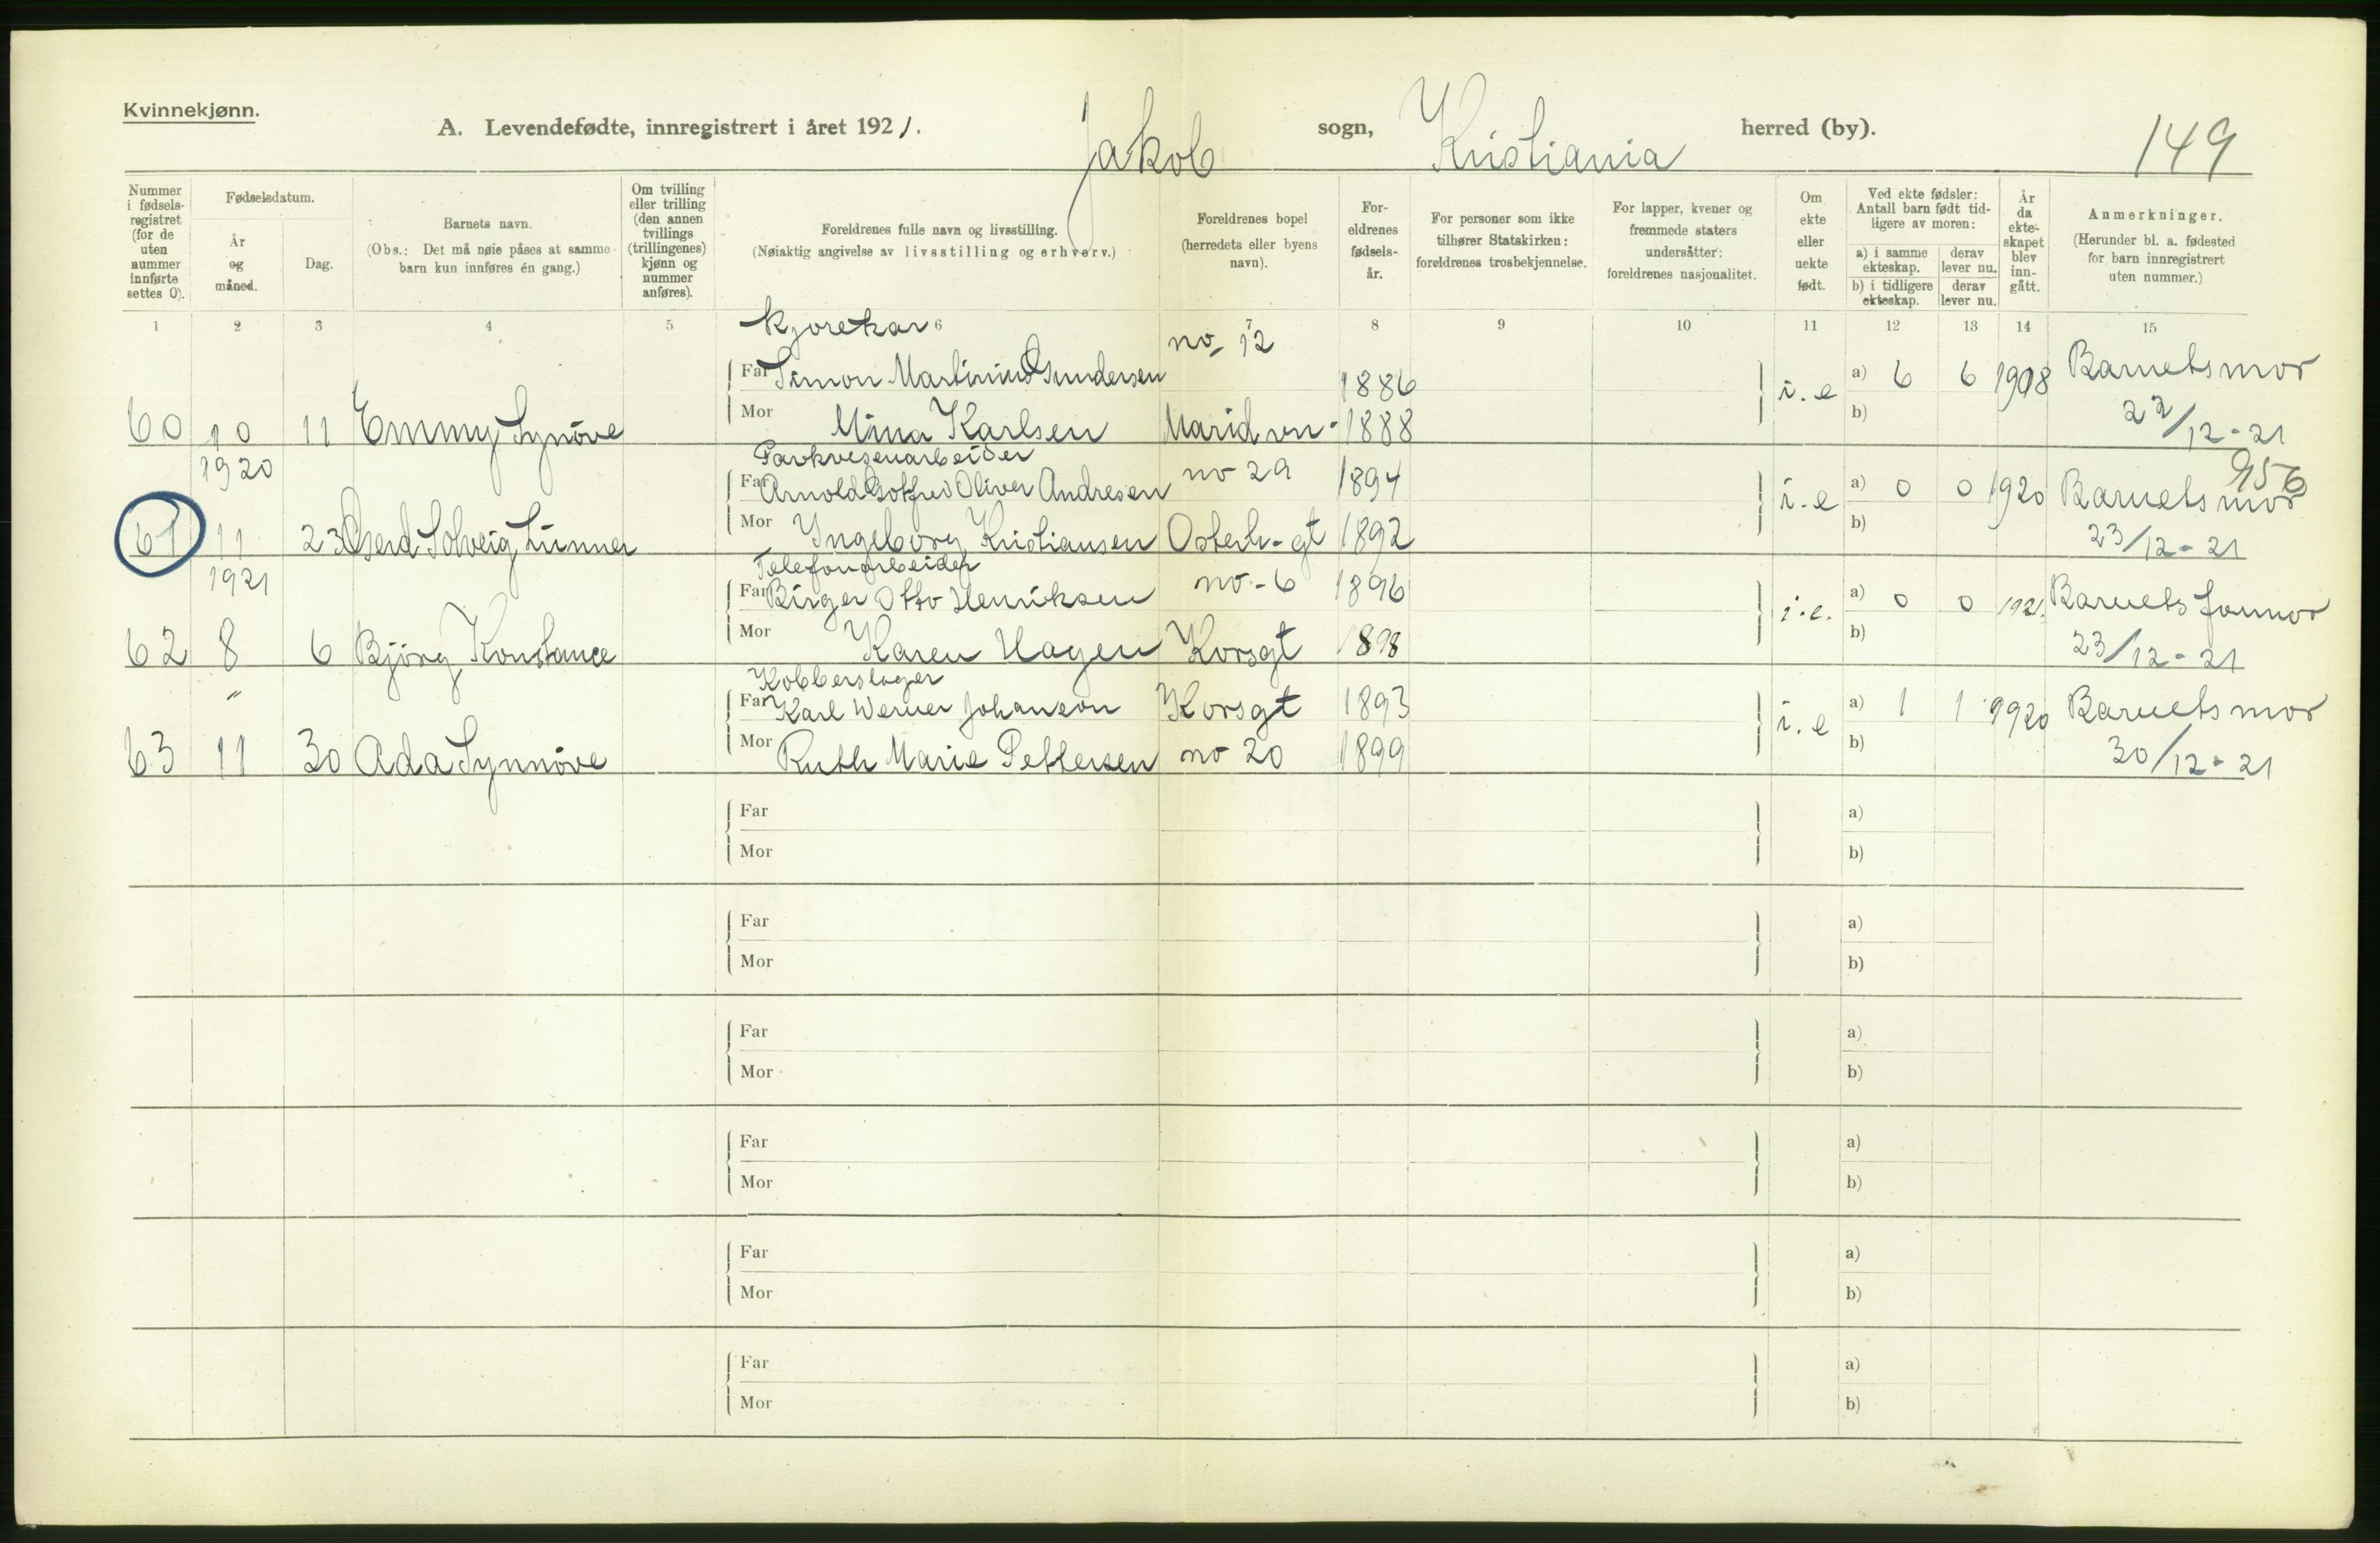 Kvinnekjønn.
A. Levendefødte, innregistrert i året 1921. Jakob sogn, Kristiania herred (by). 149
Nummer i fødsels-registret (for de uten nummer innførte settes 0).
Fødselsdatum.
År og måned.
Dag.
Barnets navn.
(Obs.: Det må nøie påses at samme barn kun innføres én gang.)
Om tvilling eller trilling (den annen tvillings (trillingenes) kjønn og nummer anføres).
Foreldrenes fulle navn og livsstilling.
(Nøiaktig angivelse av livsstilling og erhverv.)
Foreldrenes bopel (herredets eller byens navn).
For-eldrenes fødsels-år.
For personer som ikke tilhører Statskirken: foreldrenes trosbekjennelse.
For lapper, kvener og fremmede staters undersåtter: foreldrenes nasjonalitet.
Om ekte eller uekte født.
Ved ekte fødsler: Antall barn født tid-ligere av moren:
a) i samme ekteskap. derav lever nu.
b) i tidligere ekteskap. derav lever nu.
År da ekte-skapet blev inn-gått.
Anmerkninger.
(Herunder bl. a. fødested for barn innregistrert uten nummer.)
1 2 3 4 5 6 7 8 9 10 11 12 13 14 15
Kjørekar no 12
Far Simon Martinius Gundersen 1886 i.e a) 6 6 1908 Barnets mor
60 10 11 Emmy Synöve Mor Mina Karlsen Maridvn- 1888 b) 22/12-21
1920 Parkvesenarbeider 956
Far Arnold Gotfred Oliver Andresen no 29 1894 i.e a) 0 0 1920 Barnets mor
61 11 23 Gerd Solveig Lunner Mor Ingeborg Kristiansen Osterh-gt 1892 b) 23/12-21
1921 Telefonarbeider
Far Birger Otto Henriksen no-6 1896 i.e. a) 0 0 1921. Barnets
62 8 6 Björg Konstance Mor Karen Hagen Korsgt 1898 b) 23/12-21
" Kobberslager
Far Karl Werner Johanson Korsgt 1893 i.e a) 1 1 1920 Barnets mor
63 11 30 Ada Synnöve Mor Ruth Marie Pettersen no 20 1899 b) 30/12-21
Far a)
Mor b)
Far a)
Mor b)
Far a)
Mor b)
Far a)
Mor b)
Far a)
Mor b)
Far a)
Mor b)